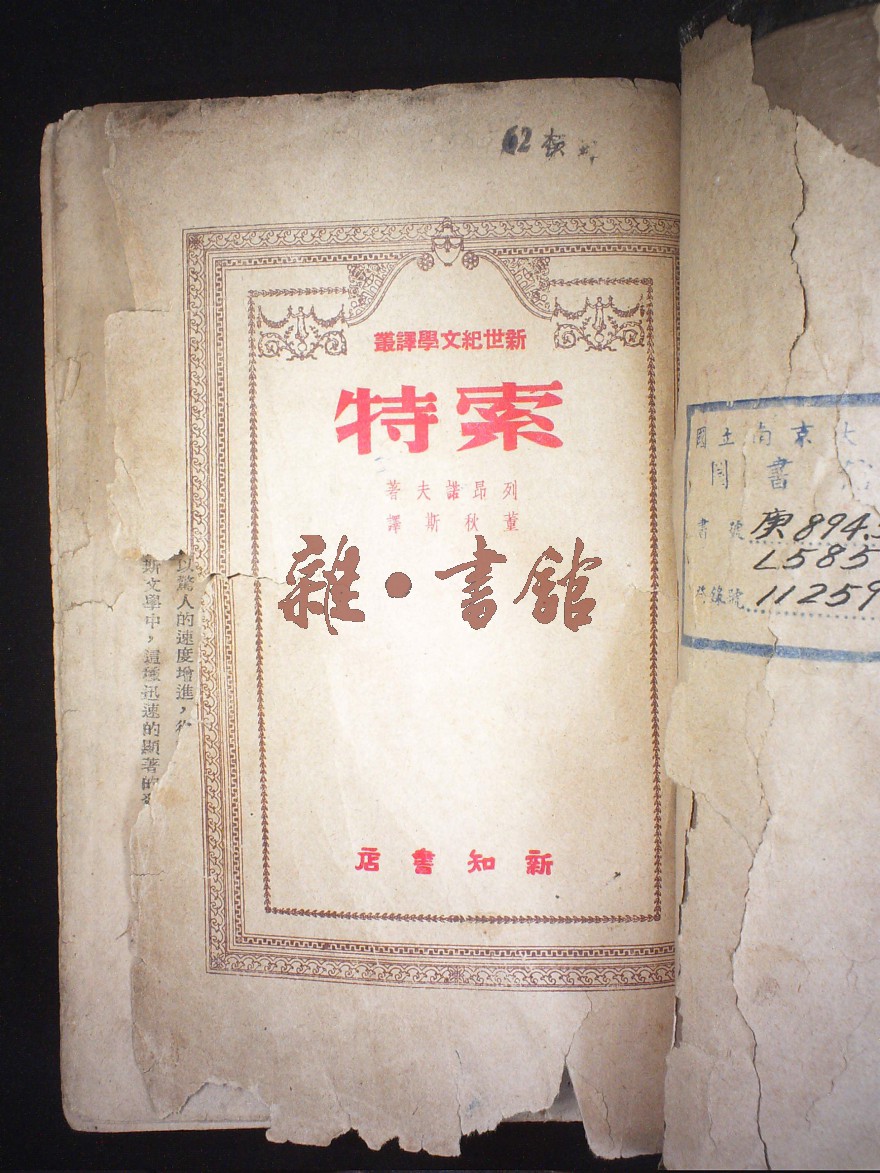 62
新世紀文學譯叢
索特
列昂諾夫著
董秋斯譯
雜·書館
新知書店
以驚人的速度增進，
斯文學中，這樣迅速的顯著的
國立南京大
圖書館
書號 庚894.
L585
登錄號 11259